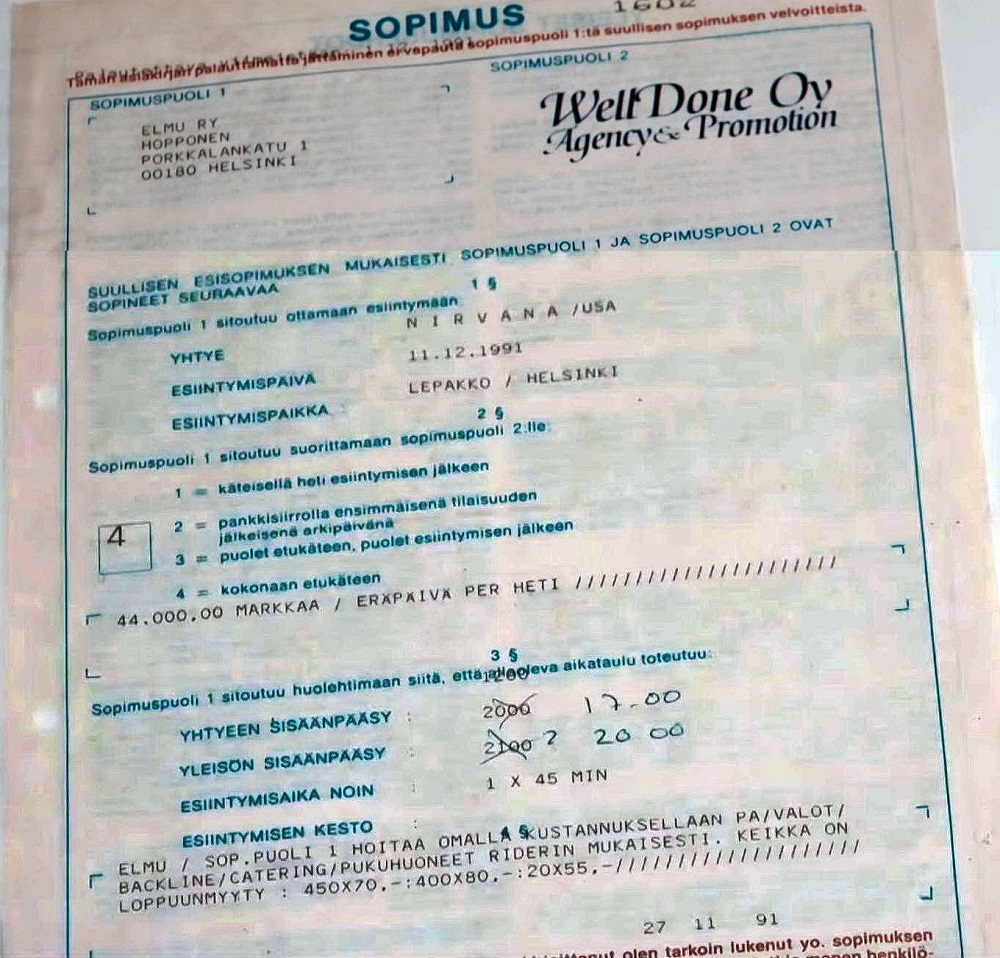 SOPIMUS
1602
Tämän asiakirjan palauttamatta jättäminen ei vapauta sopimuspuoli 1:tä suullisen sopimuksen velvoitteista.
SOPIMUSPUOLI 1
SOPIMUSPUOLI 2
ELMU RY
HOPPONEN
PORKKALANKATU 1
00180 HELSINKI
Well Done Oy
Agency & Promotion
SUULLISEN ESISOPIMUKSEN MUKAISESTI SOPIMUSPUOLI 1 JA SOPIMUSPUOLI 2 OVAT
SOPINEET SEURAAVAA
1 §
Sopimuspuoli 1 sitoutuu ottamaan esiintymään
N I R V A N A /USA
YHTYE
11.12.1991
ESIINTYMISPÄIVÄ
LEPAKKO / HELSINKI
ESIINTYMISPAIKKA
2 §
Sopimuspuoli 1 sitoutuu suorittamaan sopimuspuoli 2:lle:
1 = käteisellä heti esiintymisen jälkeen
2 = pankkisiirrolla ensimmäisenä tilaisuuden
jälkeisenä arkipäivänä
4
3 = puolet etukäteen, puolet esiintymisen jälkeen
4 = kokonaan etukäteen
44.000,00 MARKKAA / ERÄPÄIVÄ PER HETI //////////////////////
3 §
Sopimuspuoli 1 sitoutuu huolehtimaan siitä, että allaoleva aikataulu toteutuu:
YHTYEEN SISÄÄNPÄÄSY : 2000 17.00
YLEISÖN SISÄÄNPÄÄSY : 2100 ? 20 00
ESIINTYMISAIKA NOIN : 1 X 45 MIN
ESIINTYMISEN KESTO :
ELMU / SOP.PUOLI 1 HOITAA OMALLA KUSTANNUKSELLAAN PA/VALOT/
BACKLINE/CATERING/PUKUHUONEET RIDERIN MUKAISESTI. KEIKKA ON
LOPPUUNMYYTY : 450X70,-:400X80,-:20X55,-////////////////////
27 11 91
olen tarkoin lukenut yo. sopimuksen